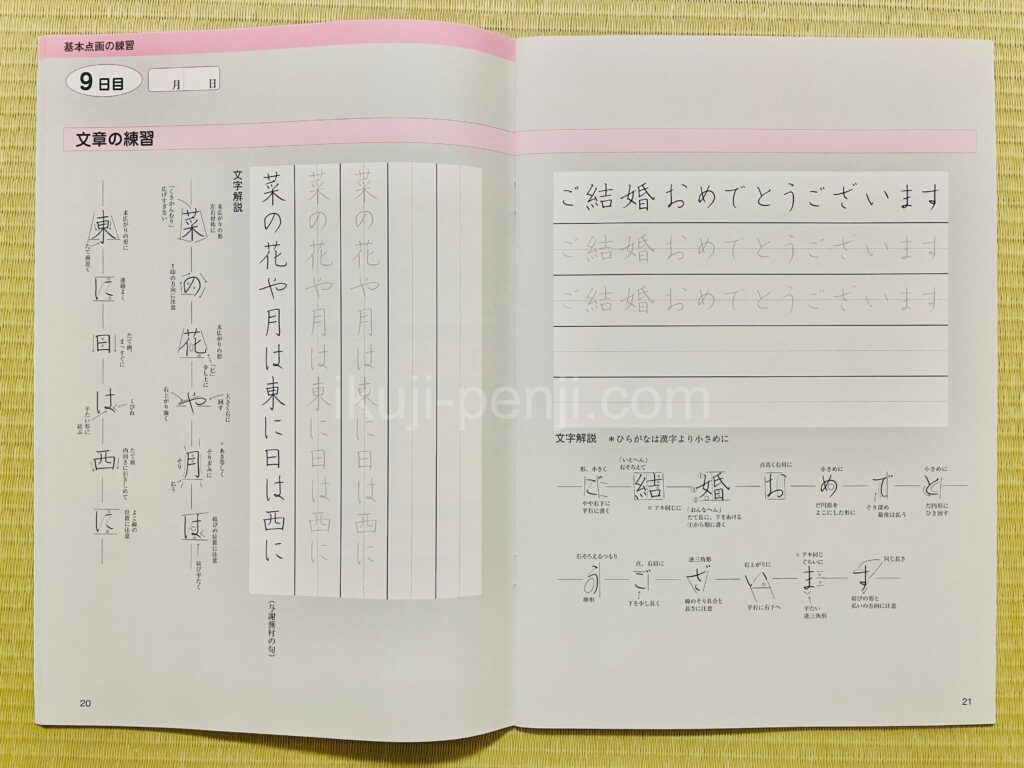 基本点画の練習
9日目
月 日
文章の練習
文字解説
菜の花や月は東に日は西に
菜の花や月は東に日は西に
菜の花や月は東に日は西に
(与謝蕪村の句)
菜
末広がりの形
左右対称に
「くさかんむり」
広げすぎない
の
↑印の方向に注意
花
末広がりの形
「ヒ」
少し上に
や
大きく右に
回す
右上がり強く
月
あき等しく
そりぎみに
そり
払う
は
結びの位置に注意
結び平たく
東
末広がりの形に
たて画長く
に
連絡よく
日
たて画、
まっすぐに
は
くびれ
平たい形に
結ぶ
西
たて画
内向きに引きしめて
に
よこ画の
位置に注意
20
ご結婚おめでとうございます
ご結婚おめでとうございます
ご結婚おめでとうございます
文字解説 *ひらがなは漢字より小さめに
形、小さく
ご
やや右下に
平行に書く
「いとへん」
右そろえて
結
○アキ同じに
婚
「おんなへん」
たて長に、下をあける
①から順に書く
点高く右羽に
お
小さめに
め
だ円形を
よこにした形に
で
そり深め
最後は払う
小さめに
と
だ円形に
ひき回す
右そろえるつもり
う
卵形
点、右羽に
ご
下を少し長く
逆三角形
ざ
線のそり具合と
長さに注意
右上がりに
い
平行に右下へ
○アキ同じ
ぐらいに
ま
平たい
逆三角形
同じ長さ
す
結びの形と
払いの方向に注意
21
ikuji-penji.com